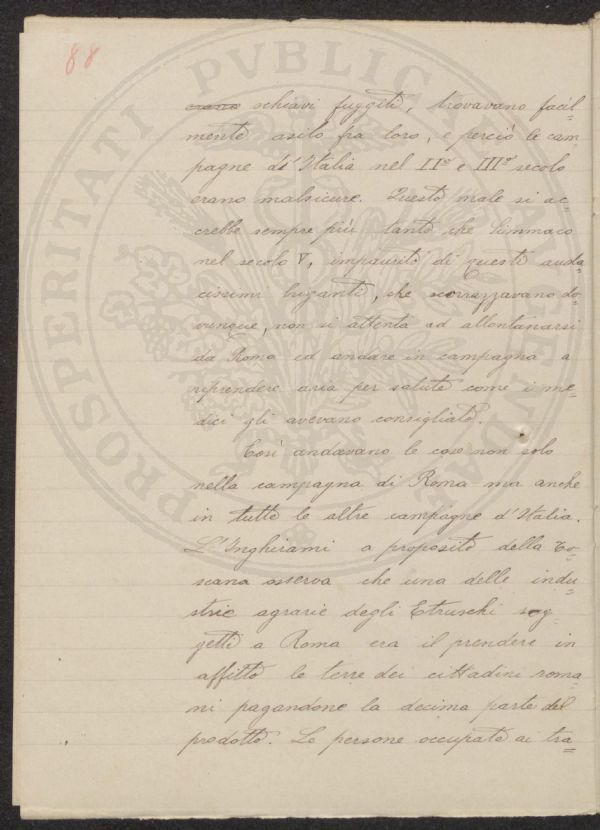 88
erano schiavi fuggiti, trovavano facil=
mente asilo fra loro, e perciò le cam=
pagne d'Italia nel IIº e IIIº secolo
erano malsicure. Questo male si ac=
crebbe sempre più tanto che Simmaco
nel secolo V, impaurito di questi auda=
cissimi briganti, che scorrazzavano do=
vunque, non si attenta ad allontanarsi
da Roma ed andare in campagna a
riprendere aria per salute come i me=
dici gli avevano consigliato.
Così andavano le cose non solo
nella campagna di Roma ma anche
in tutte le altre campagne d'Italia.
L'Inghirami a proposito della To=
scana osserva che una delle indu=
strie agrarie degli Etruschi sog=
getti a Roma era il prendere in
affitto le terre dei cittadini roma=
ni pagandone la decima parte del
prodotto. Le persone occupate ai tra=
PROSPERITATI PVBLICAE AVGENDAE